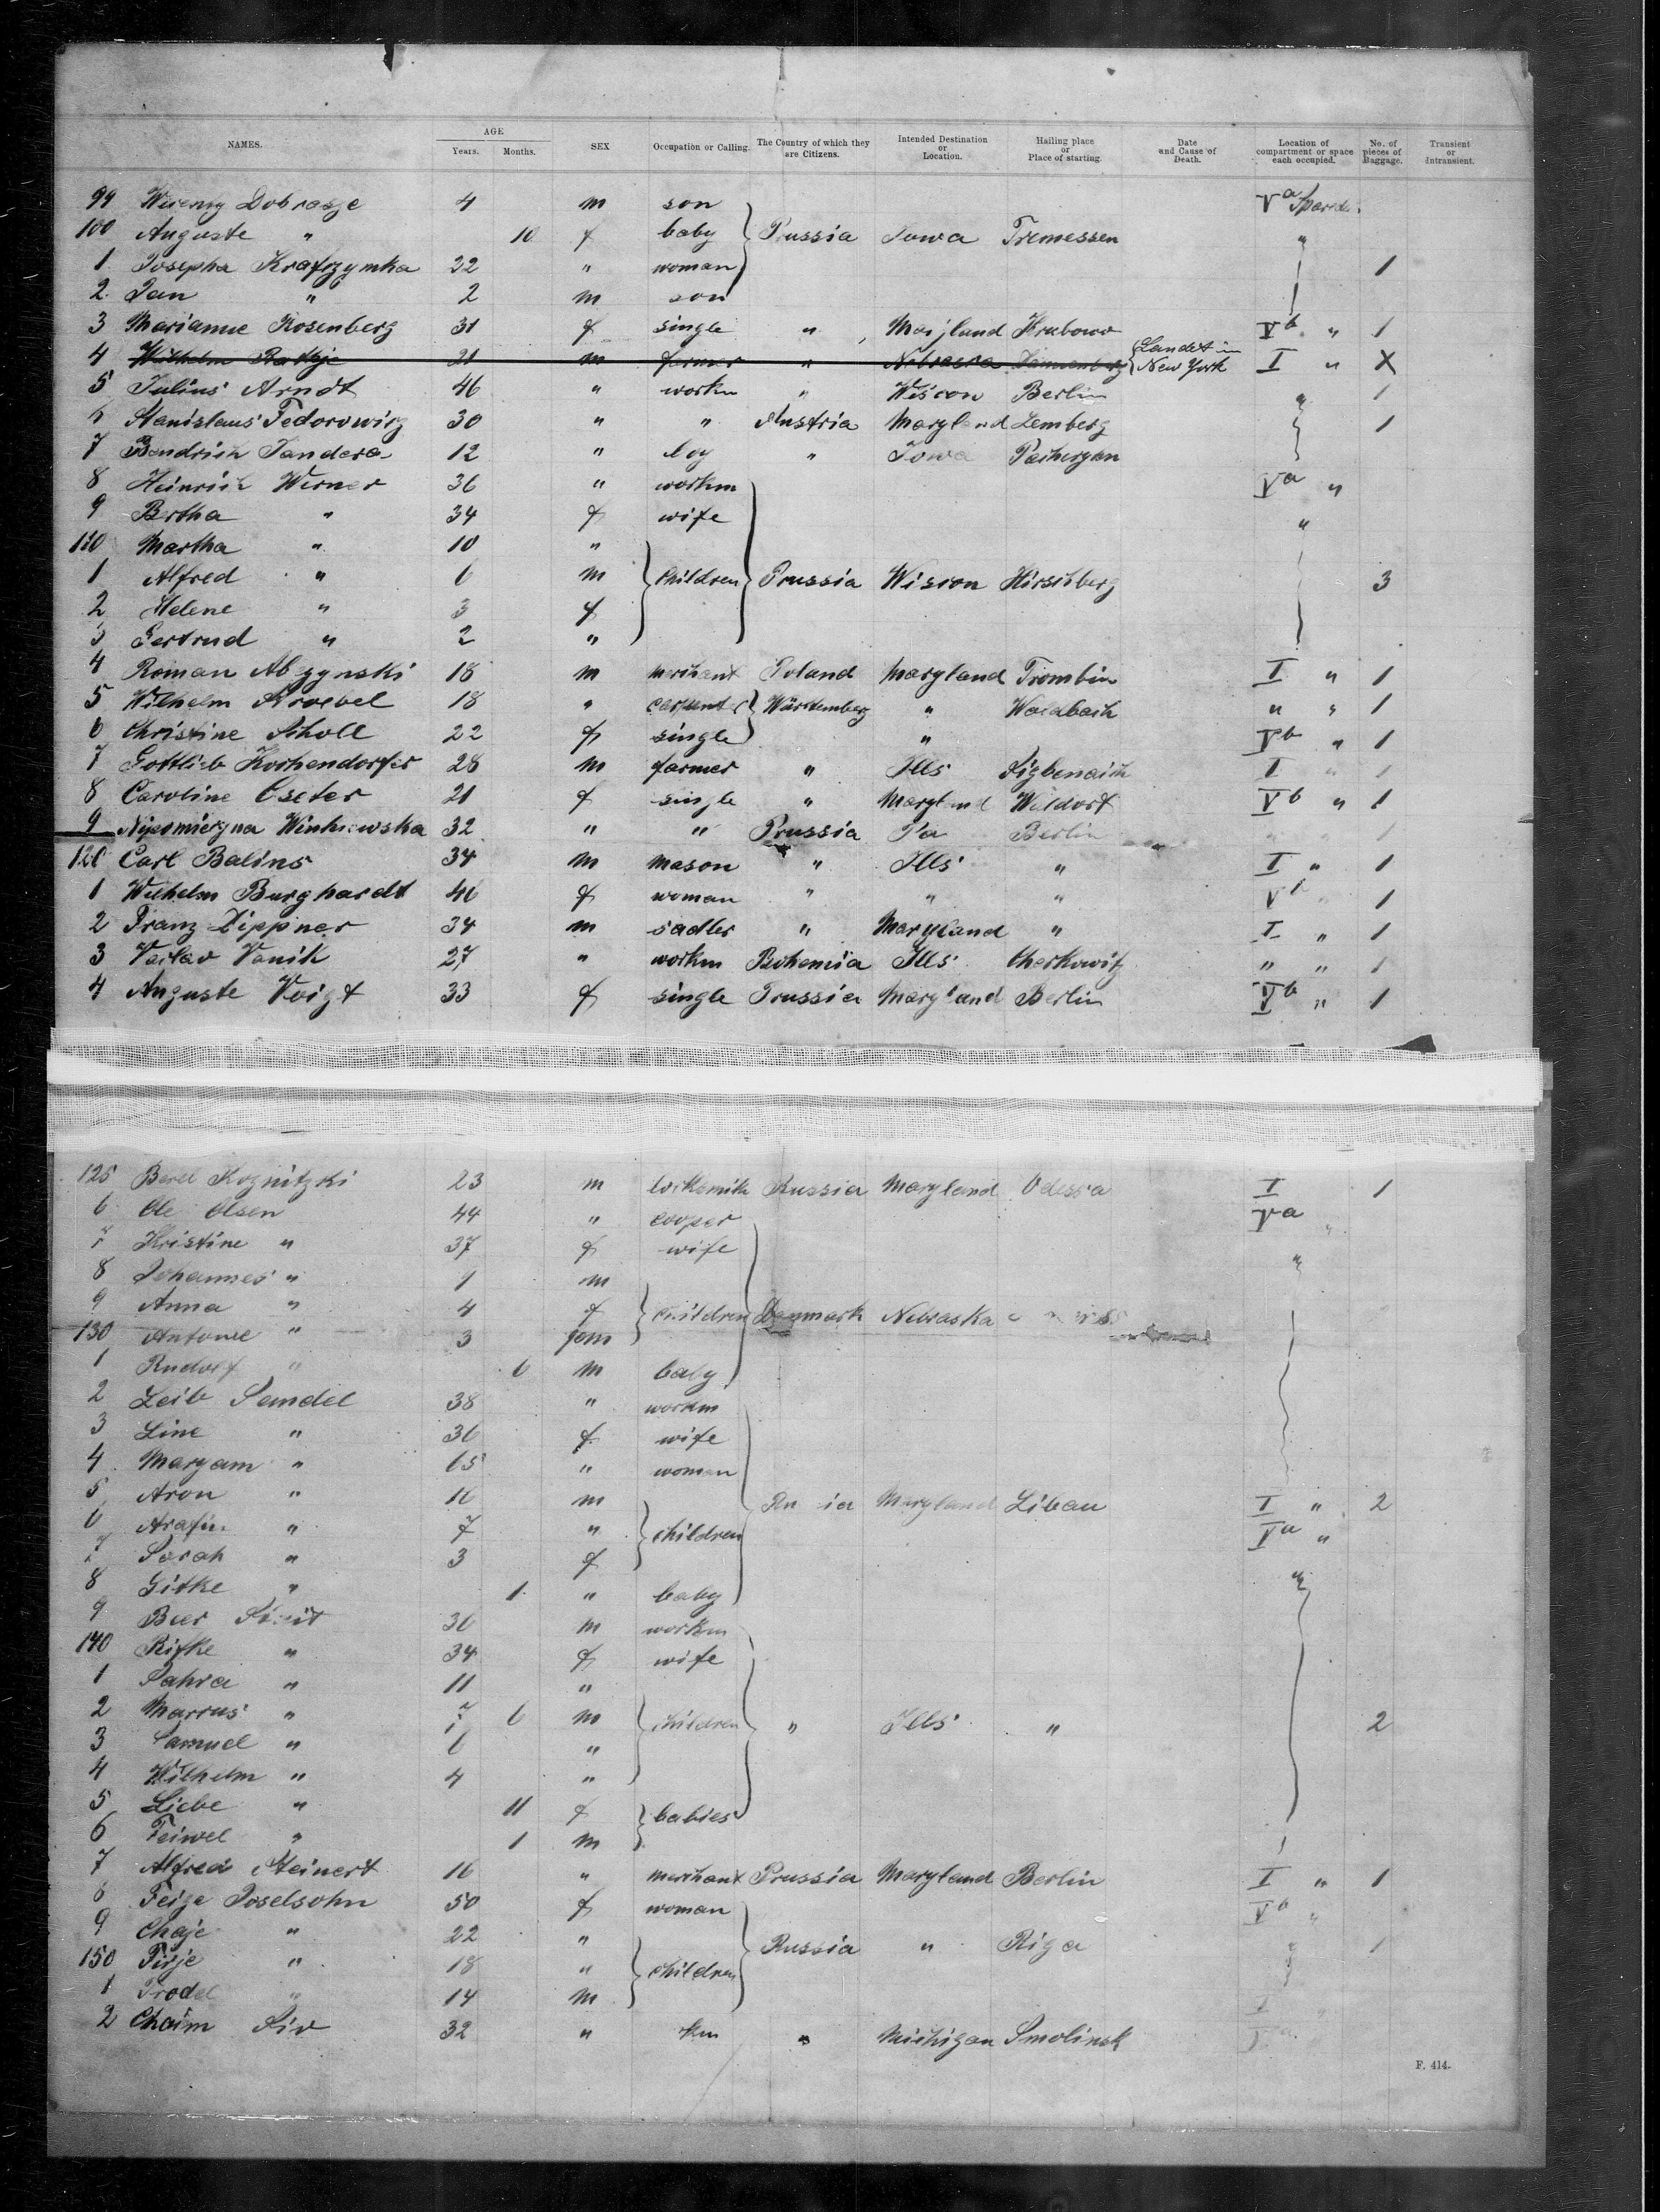 NAMES. AGE Years. Months. SEX Occupation or Calling. The Country of which they are Citizens. Intended Destination or Location. Hailing place or Place of starting. Date and Cause of Death. Location of compartment or space each occupied. No. of pieces of Baggage. Transient or Intransient.
99 Dobrasze 4 m son Va
100 Auguste " 10 f baby Prussia Iowa Tremessen "
1 Josepha 22 " woman 1
2 Jan " 2 m son
3 Marianne Rosenberg 31 f single " Hrabowo Vb " 1
4 Wilhelm Radtje 21 m farmer " Nebrasca Landet in New York I " X
5 Julius Arndt 46 " workm " Wiscon Berlin " 1
6 Stanislaus Fedorowicz 30 " " Austria Maryland Lemberg 1
7 Bendrich Jandera 12 " boy " Iowa
8 Heinrich Werner 36 " workm Va "
9 Bertha " 34 f wife "
110 Martha " 10 "
1 Alfred " 6 m children Prussia Wiscon Hirschberg 3
2 Helene " 3 f
3 Gertrud " 2 "
4 Roman Abzynski 18 m merchant Poland Maryland Trombin I " 1
5 Wilhelm Kroebel 18 " carpenter Württemberg " Waldbach " " 1
6 Christine Scholl 22 f single " Vb " 1
7 Gottlieb Kochendorfer 28 m farmer " Ills I " 1
8 Caroline Eseter 21 f single " Maryland Waldorf Vb " 1
9 32 " " Prussia Pa Berlin " " 1
120 Carl Balins 34 m mason " Ills " I " 1
1 Wilhelm Burghardt 46 f woman " " " Vb " 1
2 Franz Zippner 34 m sadler " Maryland " I " 1
3 Vaclav Vanik 27 " workm Bohemia Ills Cherkowitz " " 1
4 Auguste Voigt 33 f single Prussia Maryland Berlin Vb " 1
125 Berel Koznitzki 23 m locksmith Russia Maryland Odessa I 1
6 Ole Olsen 44 " cooper Va "
7 Kristine " 37 f wife "
8 Johannes " 1 m
9 Anna " 4 f children Danmark Nebraska
130 Antonie " 3 fem
1 Rudolf " 6 m baby
2 Leib Sendel 38 " workm
3 Line " 36 f wife
4 Maryam " 65 " woman
5 Aron " 16 m Russia Maryland Libau I " 2
6 " 7 " children Va "
7 Sorah " 3 f
8 Gitke " 1 " baby "
9 Beer 36 m workm
140 Rifke " 34 f wife
1 Sahra " 11 "
2 Marcus " 7 6 m children " Ills " 2
3 Samuel " 6 "
4 Wilhelm " 4 "
5 Liebe " 11 f babies
6 Feiwel " 1 m
7 Alfred Steinert 16 " merchant Prussia Maryland Berlin I " 1
8 Feige Joselsohn 50 f woman Vb "
9 Chaje " 22 " Russia " Riga " 1
150 Firje " 18 " children
1 Frodel " 14 m I
2 Chaim 32 " " Michigan Smolinsk Va
F. 414.